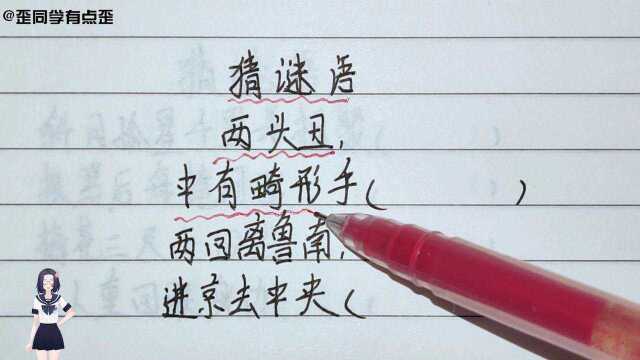 @歪同学有点歪
猜谜语
两头丑,
中有畸形手( )
两回离鲁南,
进京去中央(